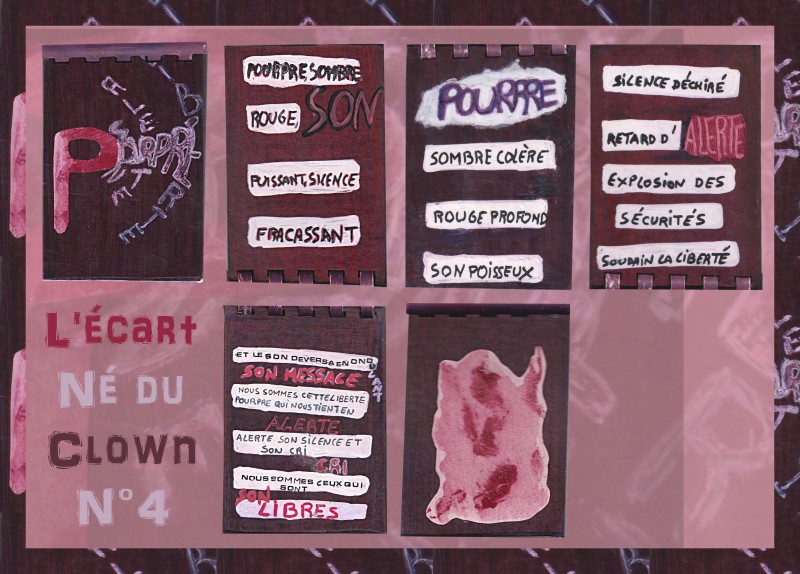 POURPRE
ALERTE
LIBERTÉ
POURPRE SOMBRE
ROUGE, SON
PUISSANT, SILENCE
FRACASSANT
POURPRE
SOMBRE COLÈRE
ROUGE PROFOND
SON POISSEUX
SILENCE DÉCHIRÉ
RETARD D' ALERTE
EXPLOSION DES
SÉCURITÉS
SOUDAIN LA LIBERTÉ
L'ÉCART
NÉ DU
CLOWN
N°4
ET LE SON DEVERSA EN OND
SON MESSAGE
NOUS SOMMES CETTE LIBERTÉ
POURPRE QUI NOUS TIENT EN
ALERTE
ALERTE SON SILENCE ET
SON CRI
CRI
NOUS SOMMES CEUX QUI
SONT
SON
LIBRES